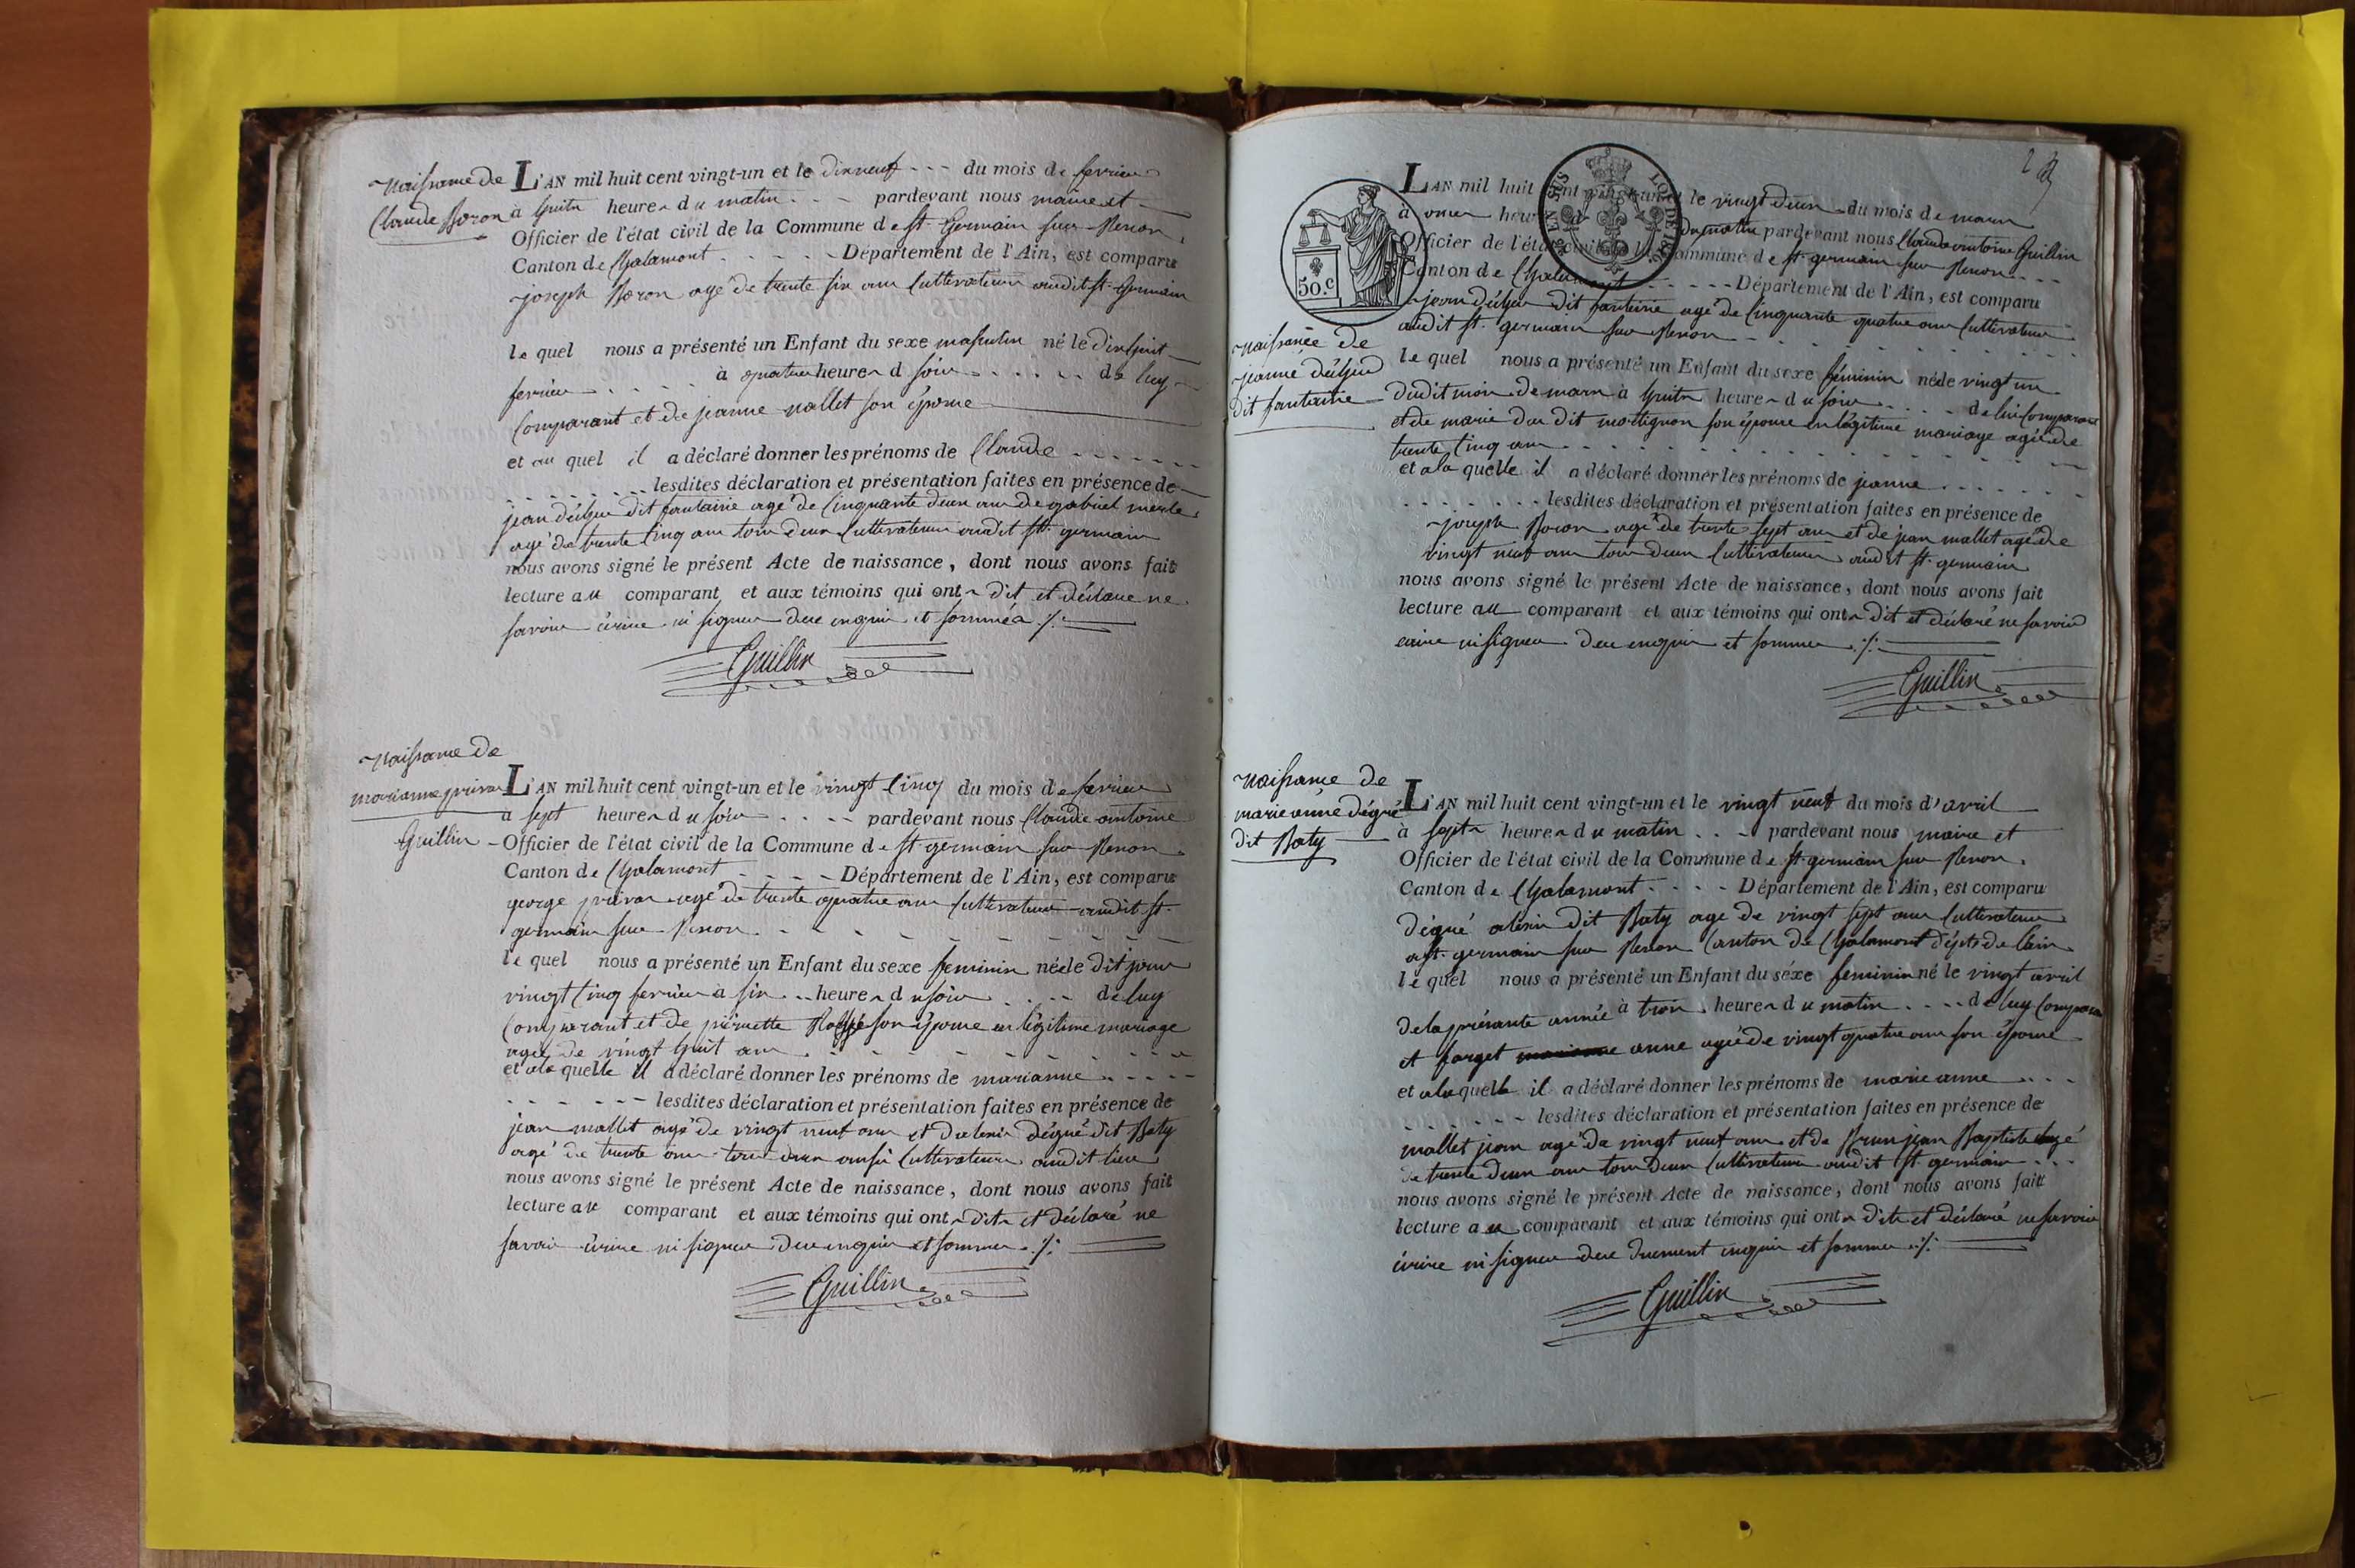 Naissance de
Claude Boron
L'AN mil huit cent vingt-un et le dixneuf --- du mois de fevrier
à huits heures du matin . - - pardevant nous maire et
Officier de l'état civil de la Commune de St. Germain sur Renon.
Canton de Chalamont - - - - - Département de l'Ain, est comparu
joseph Boron agé de trente six ans Cultivateur audit St. Germain
le quel nous a présenté un Enfant du sexe masculin né le dixhuit
fevrier - - - - à quatre heures d soir - - - - de luy
Comparant et de jeanne mallet son épouse
et au quel il a déclaré donner les prénoms de Claude - - - - - -
- - - - - - - lesdites déclaration et présentation faites en présence de
jean dit fontaine agé de Cinquante deux ans de gabriel merle
agé de trente Cinq ans tous deux Cultivateurs audit St. germain
nous avons signé le présent Acte de naissance, dont nous avons fait
lecture au comparant et aux témoins qui onts dit et déclare ne
savoir écrire ni signer de ce enquis et sommés ./.
Guillin
Naissance de
marianne privas
Guillin
L'AN mil huit cent vingt-un et le vingt Cinq du mois de fevrier
à sept heures du soir - - - - pardevant nous Claude antoine
Officier de l'état civil de la Commune de St. germain sur Renon.
Canton de Chalamont - - - - Département de l'Ain, est comparu
george privas agé de trente quatre ans Cultivateur audit St.
germain sur Renon. - - - - - - - - -
le quel nous a présenté un Enfant du sexe feminin née le dit jour
vingt Cinq fevrier à six -- heures du soir - - - - de luy
Comparant et de pierrette son épouse en légitime mariage
agée de vingt huit ans - - - - - - - - -
et a la quelle il a déclaré donner les prénoms de marianne - - - -
- - - - - - lesdites déclaration et présentation faites en présence de
jean mallet agé de vingt neuf ans et de dégué dit Baty
agé de trente ans tous deux aussi Cultivateurs audit lieu
nous avons signé le présent Acte de naissance, dont nous avons fait
lecture au comparant et aux témoins qui onts dits et déclaré ne
savoir écrire ni signer de ce enquis et sommés ./.
Guillin
50.C
L'AN mil huit cent vingt-un et le vingt deux du mois de mars
à onze heures du matin pardevant nous Claude antoine Guillin
Officier de l'état civil de la Commune de St. germain sur Renon - - -
Canton de Chalamont - - - - - Département de l'Ain, est comparu
jean dit fontaine agé de Cinquante quatre ans Cultivateur
audit St. germain sur Renon - - - - - -
Naissance de
jeanne
dit fontaine
le quel nous a présenté un Enfant du sexe féminin née le vingt un
dudit mois de mars à huits heures du soir - - - - de lui Comparant
et de marie dit son épouse en légitime mariage agée de
trente Cinq ans - - - - - - - - -
et a la quelle il a déclaré donner les prénoms de jeanne - - - - -
- - - - - - - lesdites déclaration et présentation faites en présence de
joseph Boron agé de trente sept ans et de jean mallet agé de
vingt neuf ans tous deux Cultivateurs audit St. germain
nous avons signé le présent Acte de naissance, dont nous avons fait
lecture au comparant et aux témoins qui onts dit et déclaré ne savoir
écrire ni signer de ce enquis et sommés ./.
Guillin
Naissance de
marie anne dégué
dit Baty
L'AN mil huit cent vingt-un et le vingt neuf du mois d'avril
à septs heures du matin - - - pardevant nous maire et
Officier de l'état civil de la Commune de St. germain sur Renon.
Canton de Chalamont - - - - Département de l'Ain, est comparu
dégué dit Baty agé de vingt sept ans Cultivateur
a St. germain sur Renon Canton de Chalamont dépt. de l'ain
le quel nous a présenté un Enfant du séxe feminin né le vingt avril
de la présante année à trois heures du matin - - - - de luy Comparant
et forget anne agée de vingt quatre ans son épouse
et a la quelle il a déclaré donner les prénoms de marie anne - - -
- - - - - - lesdites déclaration et présentation faites en présence de
mallet jean agé de vingt neuf ans et de Brun jean Baptiste agé
de trente deux ans tous deux Cultivateurs audit St. germain - - -
nous avons signé le présent Acte de naissance, dont nous avons fait
lecture au comparant et aux témoins qui onts dits et déclaré ne savoir
écrire ni signer de ce duement enquis et sommés ./.
Guillin